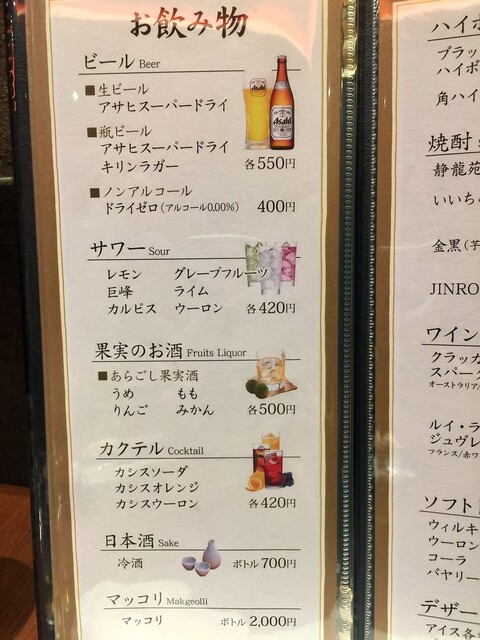 お飲み物
ビール Beer
■生ビール
アサヒスーパードライ
■瓶ビール
アサヒスーパードライ
キリンラガー 各550円
■ノンアルコール
ドライゼロ(アルコール0.00%) 400円
サワー Sour
レモン グレープフルーツ
巨峰 ライム
カルピス ウーロン 各420円
果実のお酒 Fruits Liquor
■あらごし果実酒
うめ もも
りんご みかん 各500円
カクテル Cocktail
カシスソーダ
カシスオレンジ
カシスウーロン 各420円
日本酒 Sake
冷酒 ボトル700円
マッコリ Makgeolli
マッコリ ボトル2,000円
Asahi
Asahi
ハイボ
ブラッ
ハイボ
角ハイ
焼酎
静龍苑
いいち
金黒(芋
JINRO
ワイン
クラッカ
スパーク
オーストラリア/
ルイ・ラ
ジュヴレ
フランス/赤ワ
ソフト
ウィルキ
ウーロン
コーラ
バヤリー
デザー
アイス各